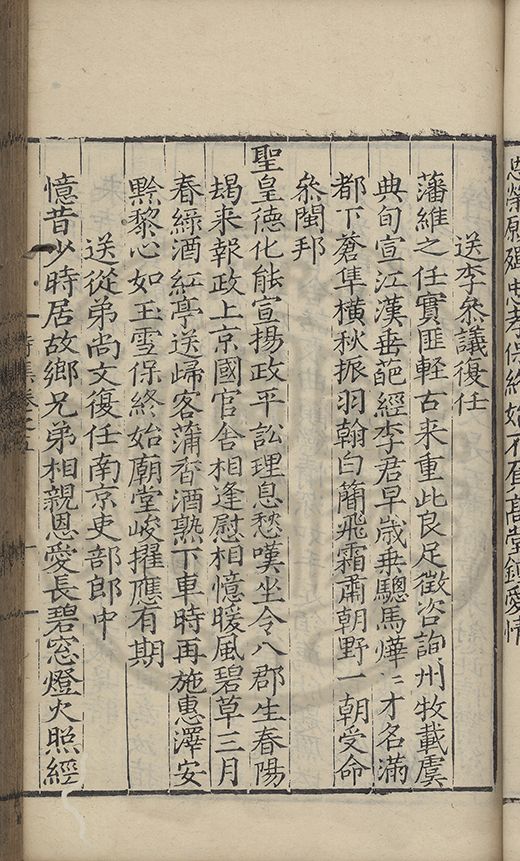 忠榮願殫忠孝保終始不負高堂鍾愛情
送李叅議復任
藩維之任實匪輕古来重此良足徵咨詢州牧載虞
典旬宣江漢垂葩經李君早歳乗驄馬燁〻才名滿
都下蒼隼横秋振羽翰白簡飛霜肅朝野一朝受命
叅閩邦
聖皇德化能宣揚政平訟理息愁嘆坐令八郡生春陽
朅来報政上京國官舎相逢慰相憶暖風碧草三月
春緑酒紅亭送歸客蒲香酒熟下車時再施惠澤安
黔黎心如玉雪保終始廟堂峻擢應有期
送從弟尚文復任南京吏部郎中
憶昔少時居故鄉兄弟相親恩愛長碧窓燈火照經